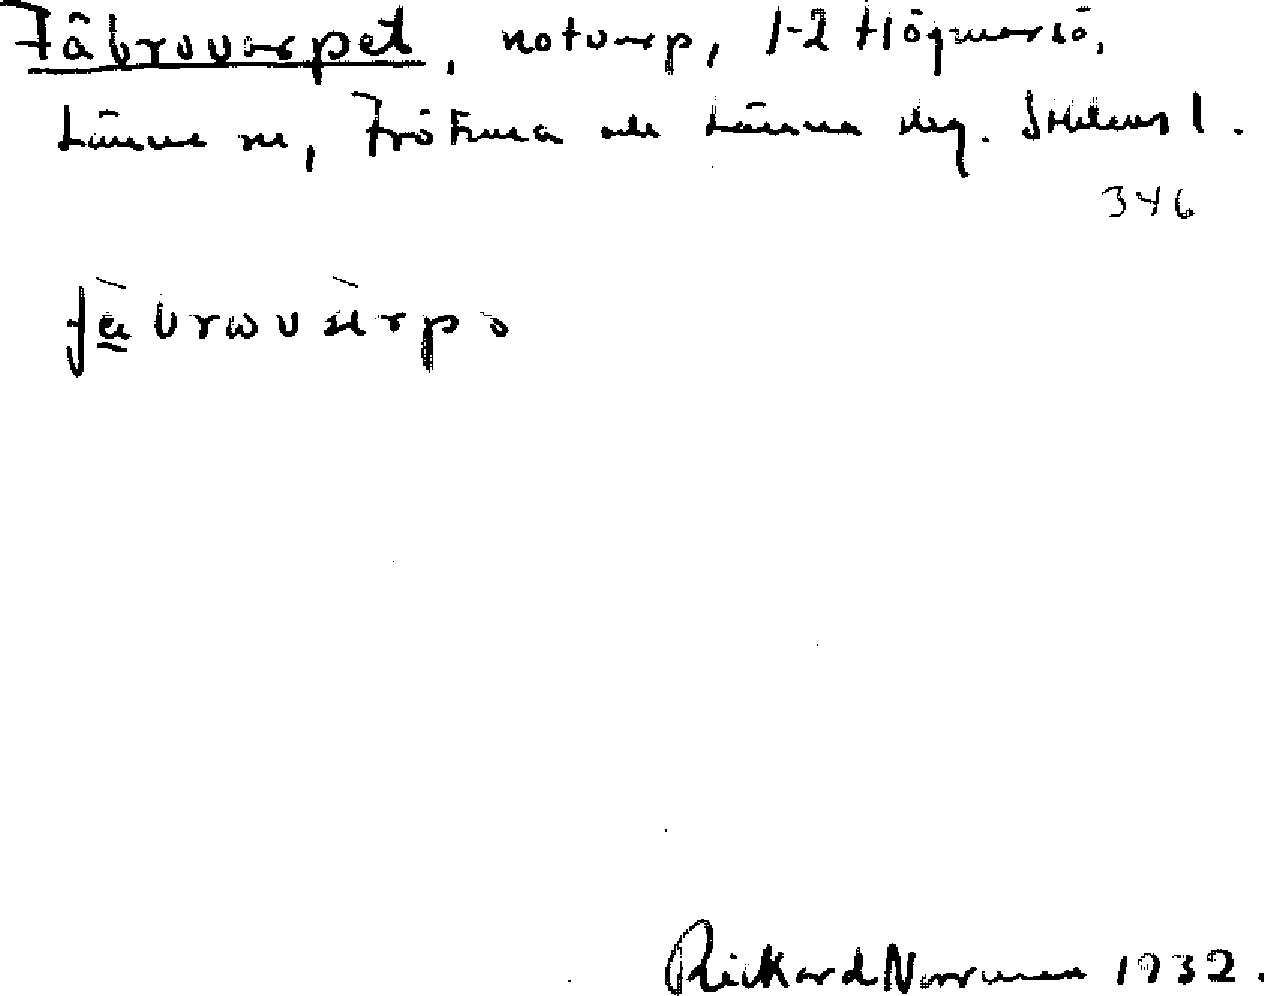 Fäbrovarpet, notvarp, 1-2 Högmarsö,
Länna sn, Frötuna och Länna skg. Sthlms l.
346
fä̀brωvàrpə
Rickard Norrman 1932.